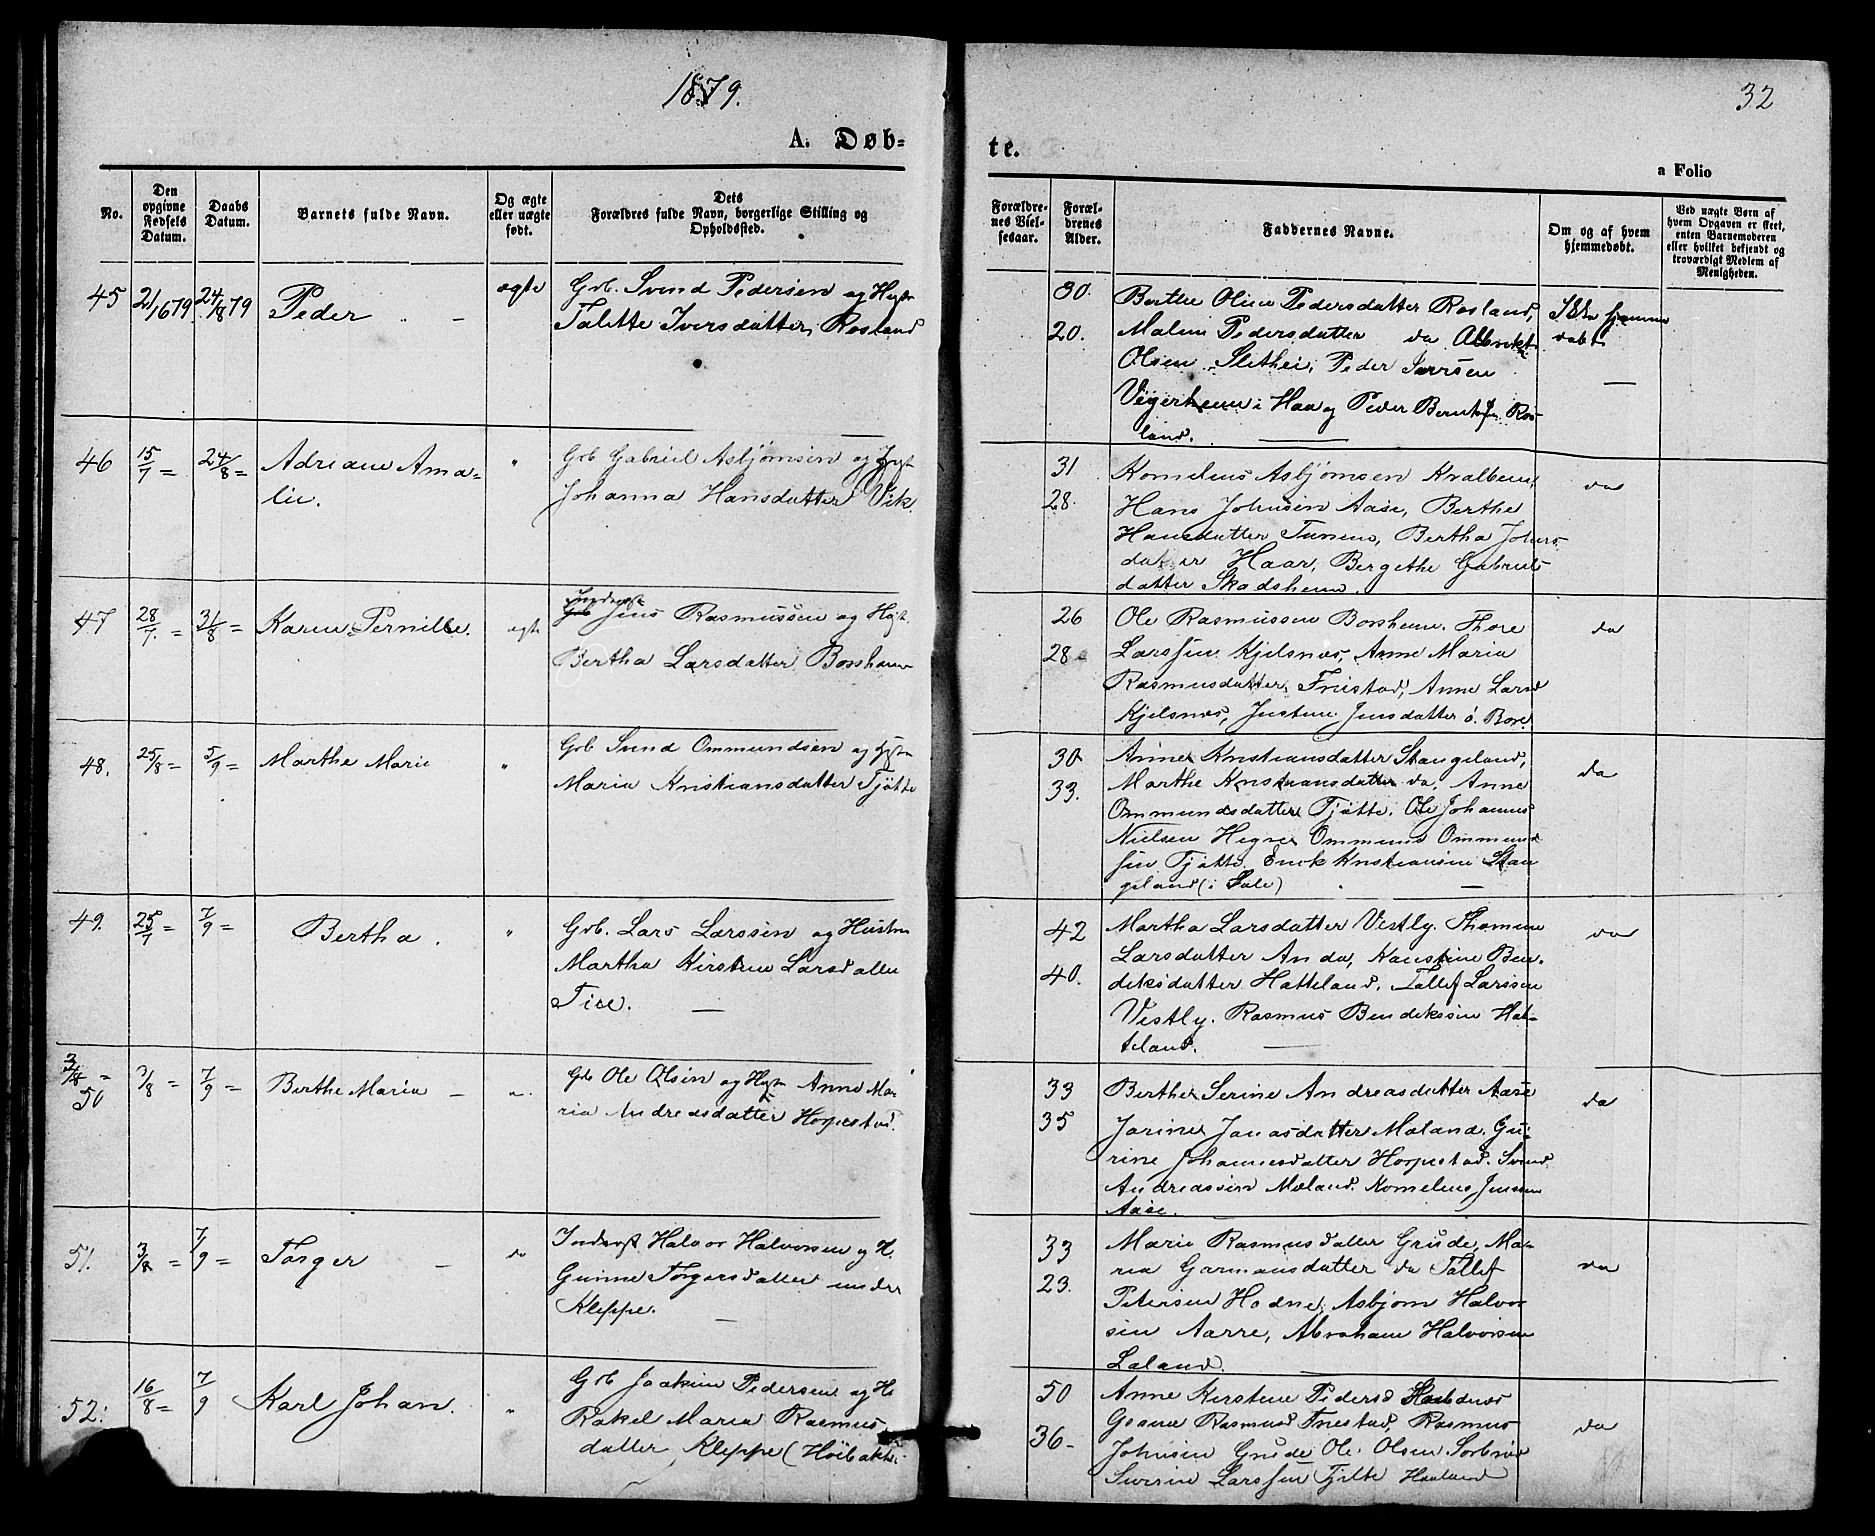 1879.
32
A. Døb-
te.
a Folio
No.
Den opgivne Fødsels Datum.
Daabs Datum.
Barnets fulde Navn.
Og ægte eller uægte født.
Dets Forældres fulde Navn, borgerlige Stilling og Opholdssted.
Forældrenes Vielsesaar.
Forældrenes Alder.
Faddernes Navne.
Om og af hvem hjemmedøbt.
Ved uægte Børn af hvem Opgaven er skeet, enten Barnemoderen eller hvilket bekjendt og troværdigt Medlem af Menigheden.
45 21/6 79 24/8 79 Peder ægte Grb. Svend Pedersen og Hust
Talette Iversdatter, Rosland
30. Berthe Oline Pedersdatter Rosland, Ikke hjemme
20. Malene Pedersdatter do
døbt
Olsen Slethei, Peder
i Haa og Peder
land.
46 15/7 = 24/8 = Adriane Ama-
lie. " Grb Gabriel Asbjørnsen og Hust
Johanna Hansdatter Vik.
31 Kornelius Asbjørnsen Kvalbein, do
28. Hans Johnsen Aase, Berthe
Hansdatter Tunem, Bertha Johns
datter Haar, Bergethe Gabriels
datter Skadsheim.
47 28/7 = 31/8 = Karen Pernille. ægte Inderst
Grb Jens Rasmussen og Hust.
Bertha Larsdatter Borsheim
26 Ole Rasmussen Borsheim. Thore do
28 Larssen Kjelsnes, Anne Maria
Rasmusdatter Friestad, Anne Larsd
Kjelsnes, Justine Jensdatter ö. Bore
48. 25/8 = 5/9 = Marthe Marie " Grb Svend Ommundsen og Hust
Maria Kristiansdatter Tjötte
30 Anne Kristiansdatter Stangeland, do
33. Marthe Kristiansdatter do, Anne
Ommundsdatter Tjötte. Ole Johannes
Nielsen Hegre Ommund Ommund
sen Tjötte. Enok Kristiansen Stan
geland (i Sole)
49. 25/7 = 7/9 = Bertha. " Grb. Lars Larssen og Hustru
Martha Kirstine Larsdatter
Tise.
42 Martha Larsdatter Vestly. Thomine do
40. Larsdatter Anda, Karstine Ben-
diksdatter Hatteland. Tallef Larssen
Vestly. Rasmus Bendikssen Hat-
teland.
3/8 =
50 3/8 = 7/9 = Berthe Maria " Grb Ole Olsen og Hust Anne Ma-
ria Andreasdatter Horpestad.
33 Berthe Serine Andreasdatter Aase do
35 Jorine Jonasdatter Mæland. Gu-
rine Johannesdatter Horpestad. Svend
Andreassen Mæland. Kornelius Jenssen
Aase.
51. 3/8 = 7/9 = Torger do Inderst Halvor Halvorsen og H.
Gunne Torgersdatter under
Kleppe.
33 Marie Rasmusdatter Grude, Ma- do
23. ria Garmansdatter do Tallef
Petersen Hodne, Asbjørn Halvor
sen Aarre, Abraham Halvorsen
Laland.
52. 16/8 = 7/9 Karl Johan. " Grb Joakim Pedersen og H.
Rakel Maria Rasmus
datter Kleppe (Höibakke)
50 Anne Kirstine Pedersd do
36- Rasmusd Friestad, Rasmus
Johnsen Grude Ole Olsen
Larssen Tjelte Haaland